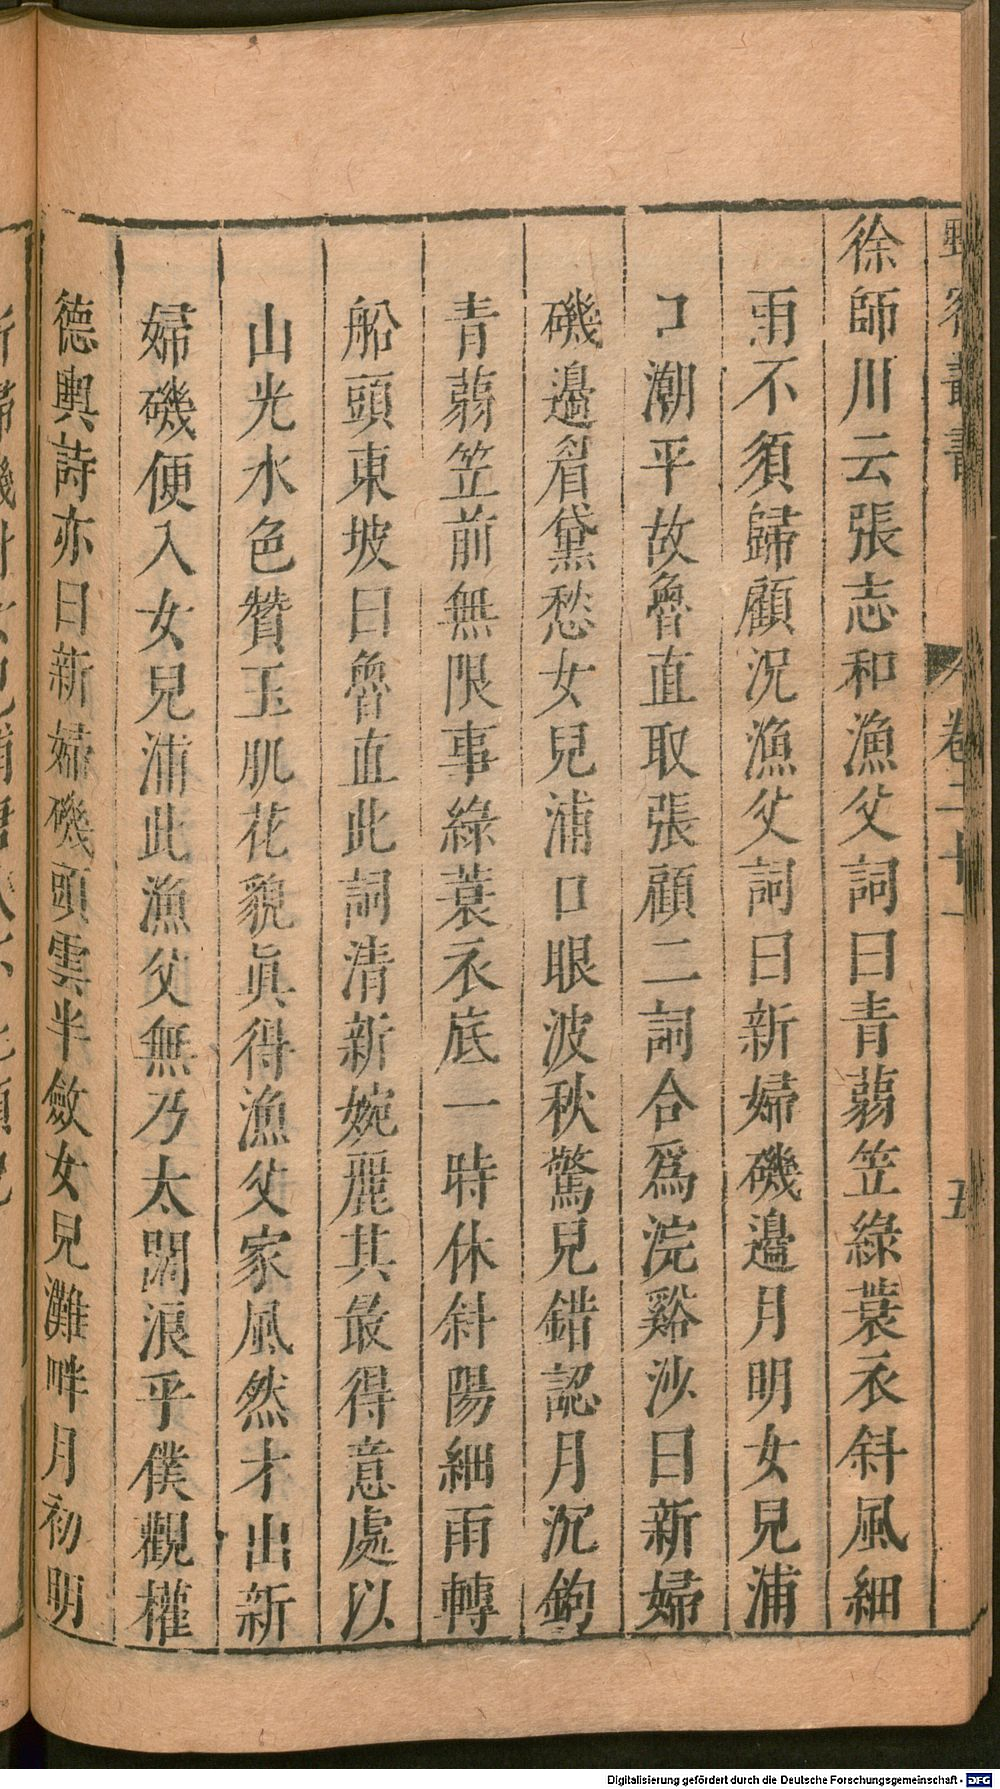 野客叢書 卷二十一 五
徐師川云張志和漁父詞曰青蒻笠綠蓑衣斜風細
雨不須歸顧況漁父詞曰新婦磯邉月明女兒浦
口潮平故魯直取張顧二詞合爲浣谿沙曰新婦
磯邉眉黛愁女兒浦口眼波秋驚見錯認月沉鉤
青蒻笠前無限事綠蓑衣底一時休斜陽細雨轉
船頭東坡曰魯直此詞清新婉麗其最得意處以
山光水色贊玉肌花貌眞得漁父家風然才出新
婦磯便入女兒浦此漁父無乃太闊浪乎僕觀權
德輿詩亦曰新婦磯頭雲半斂女兒灘畔月初明
Digitalisierung gefördert durch die Deutsche Forschungsgemeinschaft - DFG